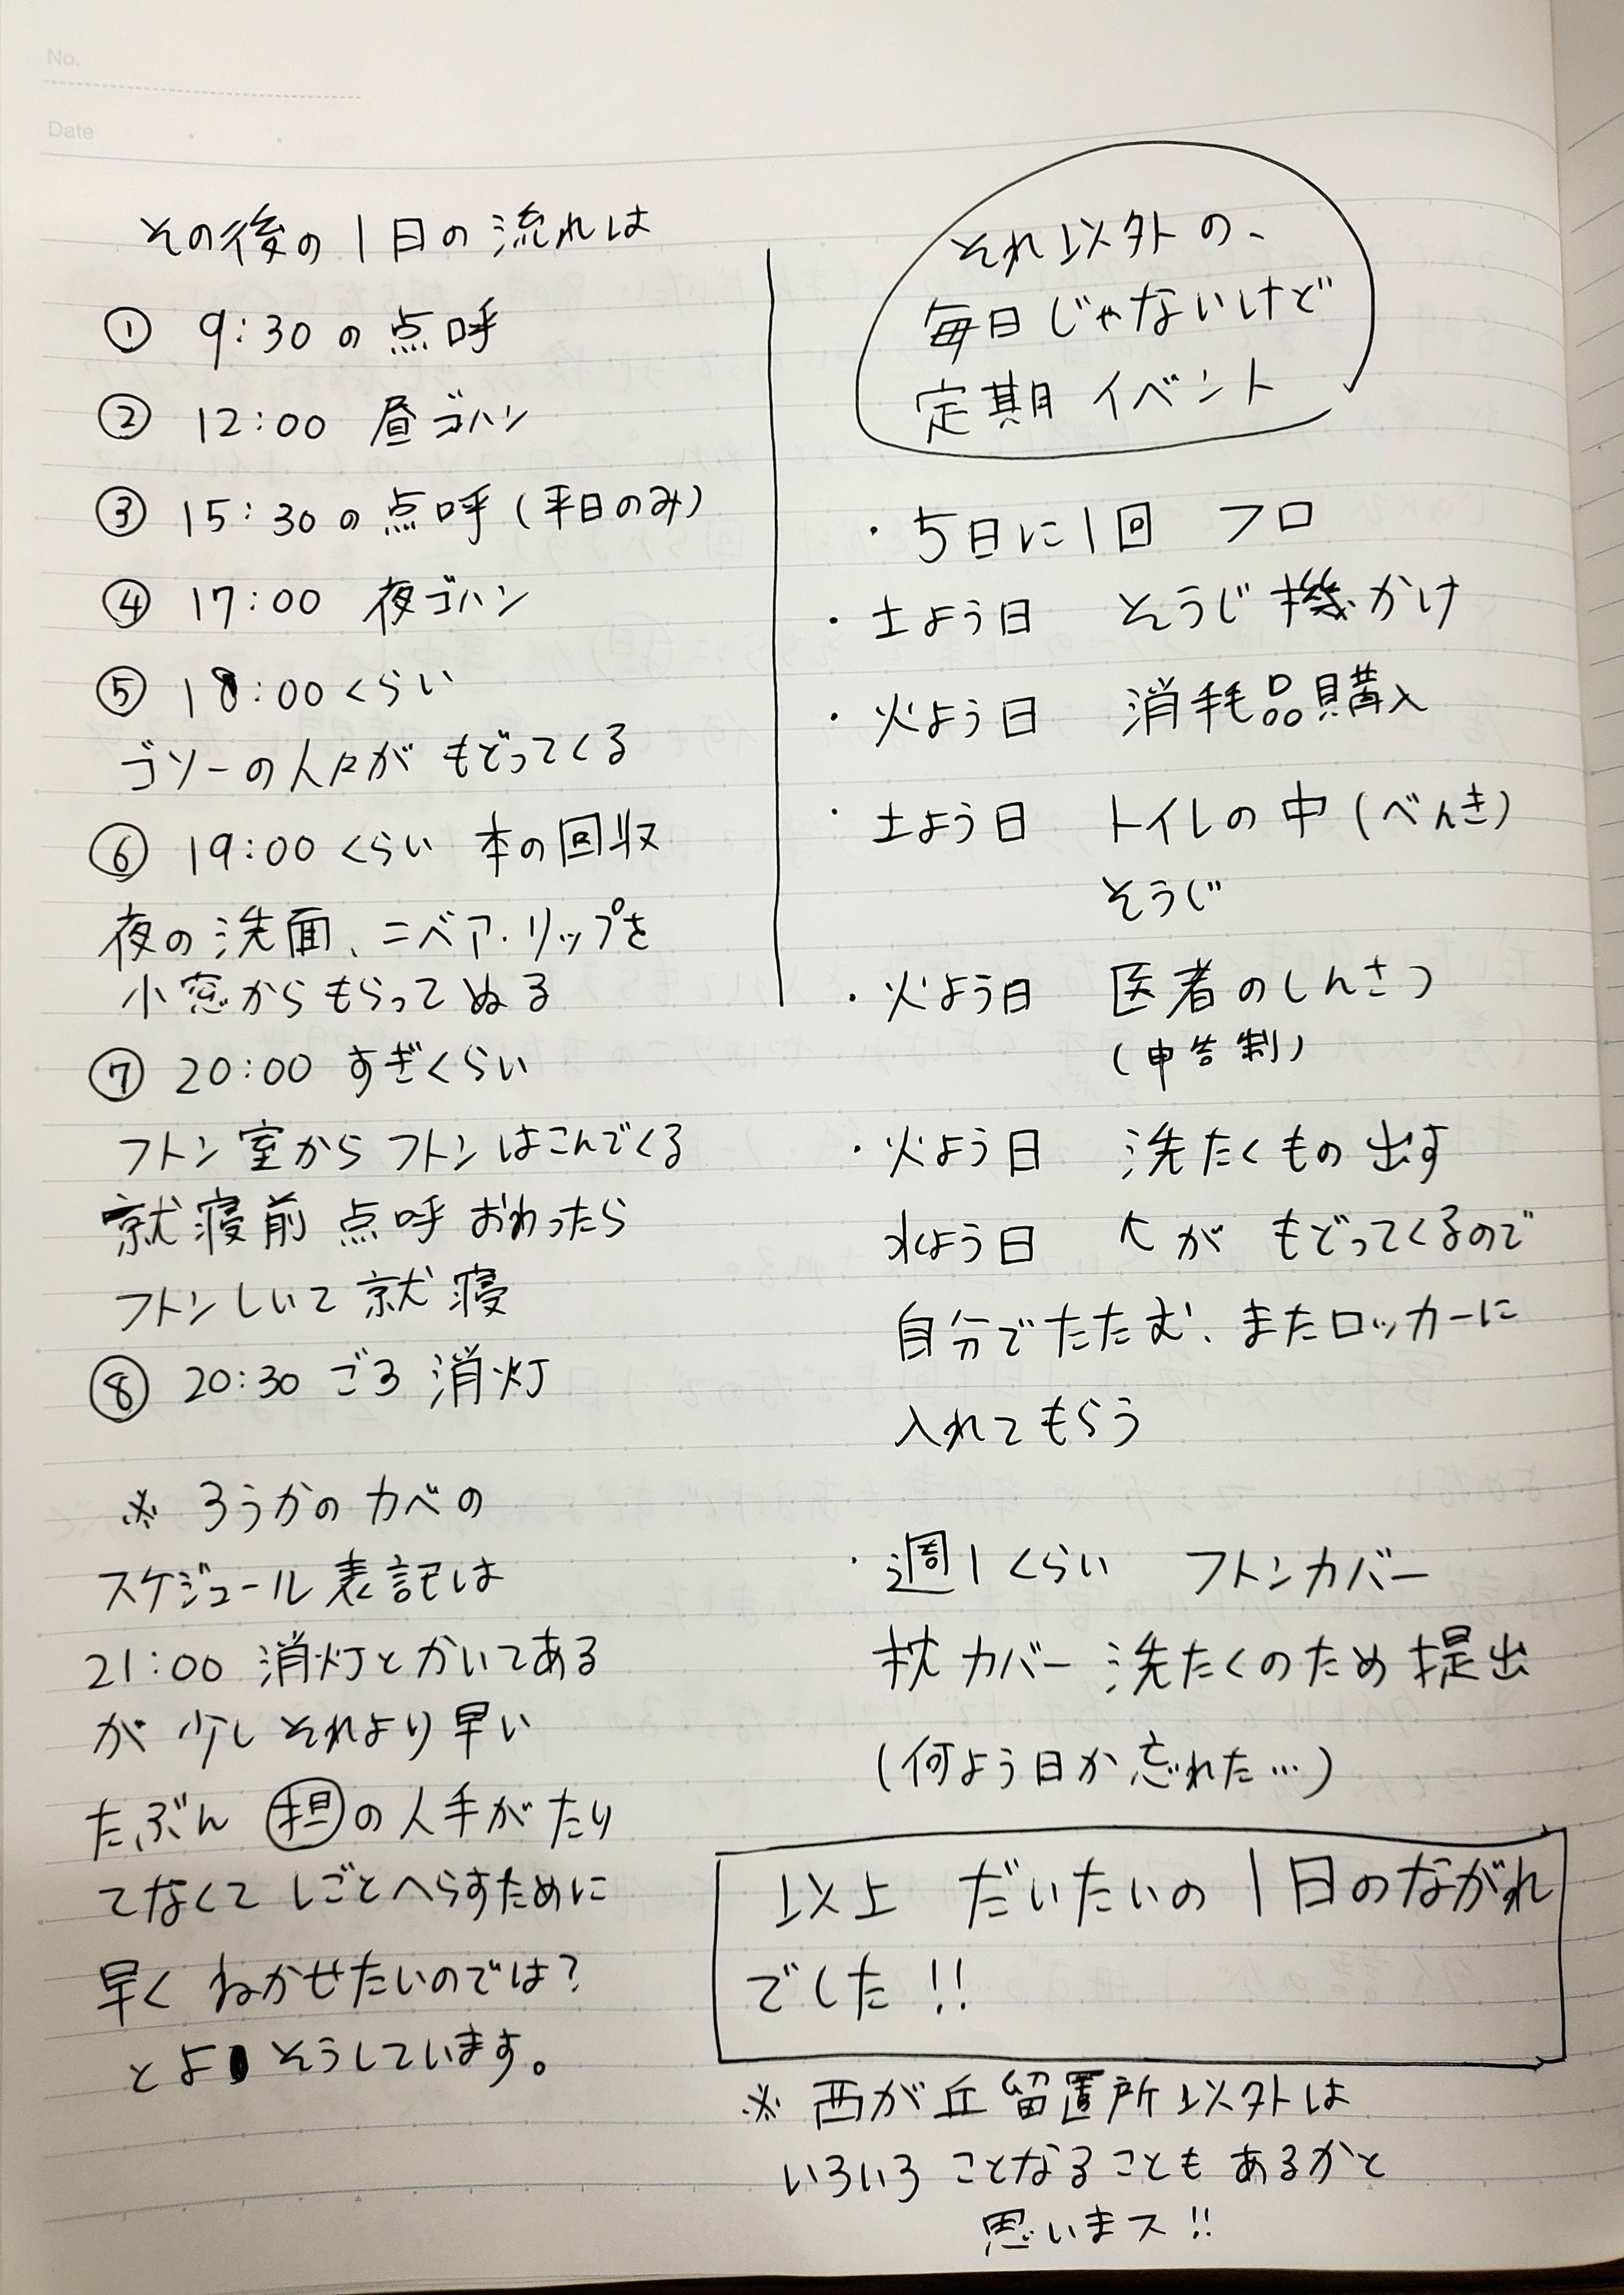 No.
Date
その後の1日の流れは
① 9:30の点呼
② 12:00 昼ゴハン
③ 15:30の点呼(平日のみ)
④ 17:00 夜ゴハン
⑤ 18:00くらい
ゴソーの人々が もどってくる
⑥ 19:00くらい 本の回収
夜の洗面、ニベア・リップを
小窓からもらってぬる
⑦ 20:00 すぎくらい
フトン室からフトンはこんでくる
就寝前 点呼 おわったら
フトンしいて就寝
⑧ 20:30 ごろ 消灯
※ ろうかのカベの
スケジュール表記は
21:00 消灯とかいてある
が 少しそれより早い
たぶん 担の人手がたり
てなくて しごとへらすために
早く ねかせたいのでは?
とよそうしています。
それ以外の、
毎日じゃないけど
定期イベント
・5日に1回 フロ
・土よう日 そうじ機かけ
・火よう日 消耗品購入
・土よう日 トイレの中(べんき)
そうじ
・火よう日 医者のしんさつ
(申告制)
・火よう日 洗たくもの出す
水よう日 ↖が もどってくるので
自分でたたむ、またロッカーに
入れてもらう
・週1くらい フトンカバー
枕カバー 洗たくのため提出
(何よう日か忘れた…)
以上 だいたいの1日のながれ
でした!!
※ 西が丘留置所以外は
いろいろ ことなることも あるかと
思いまス!!